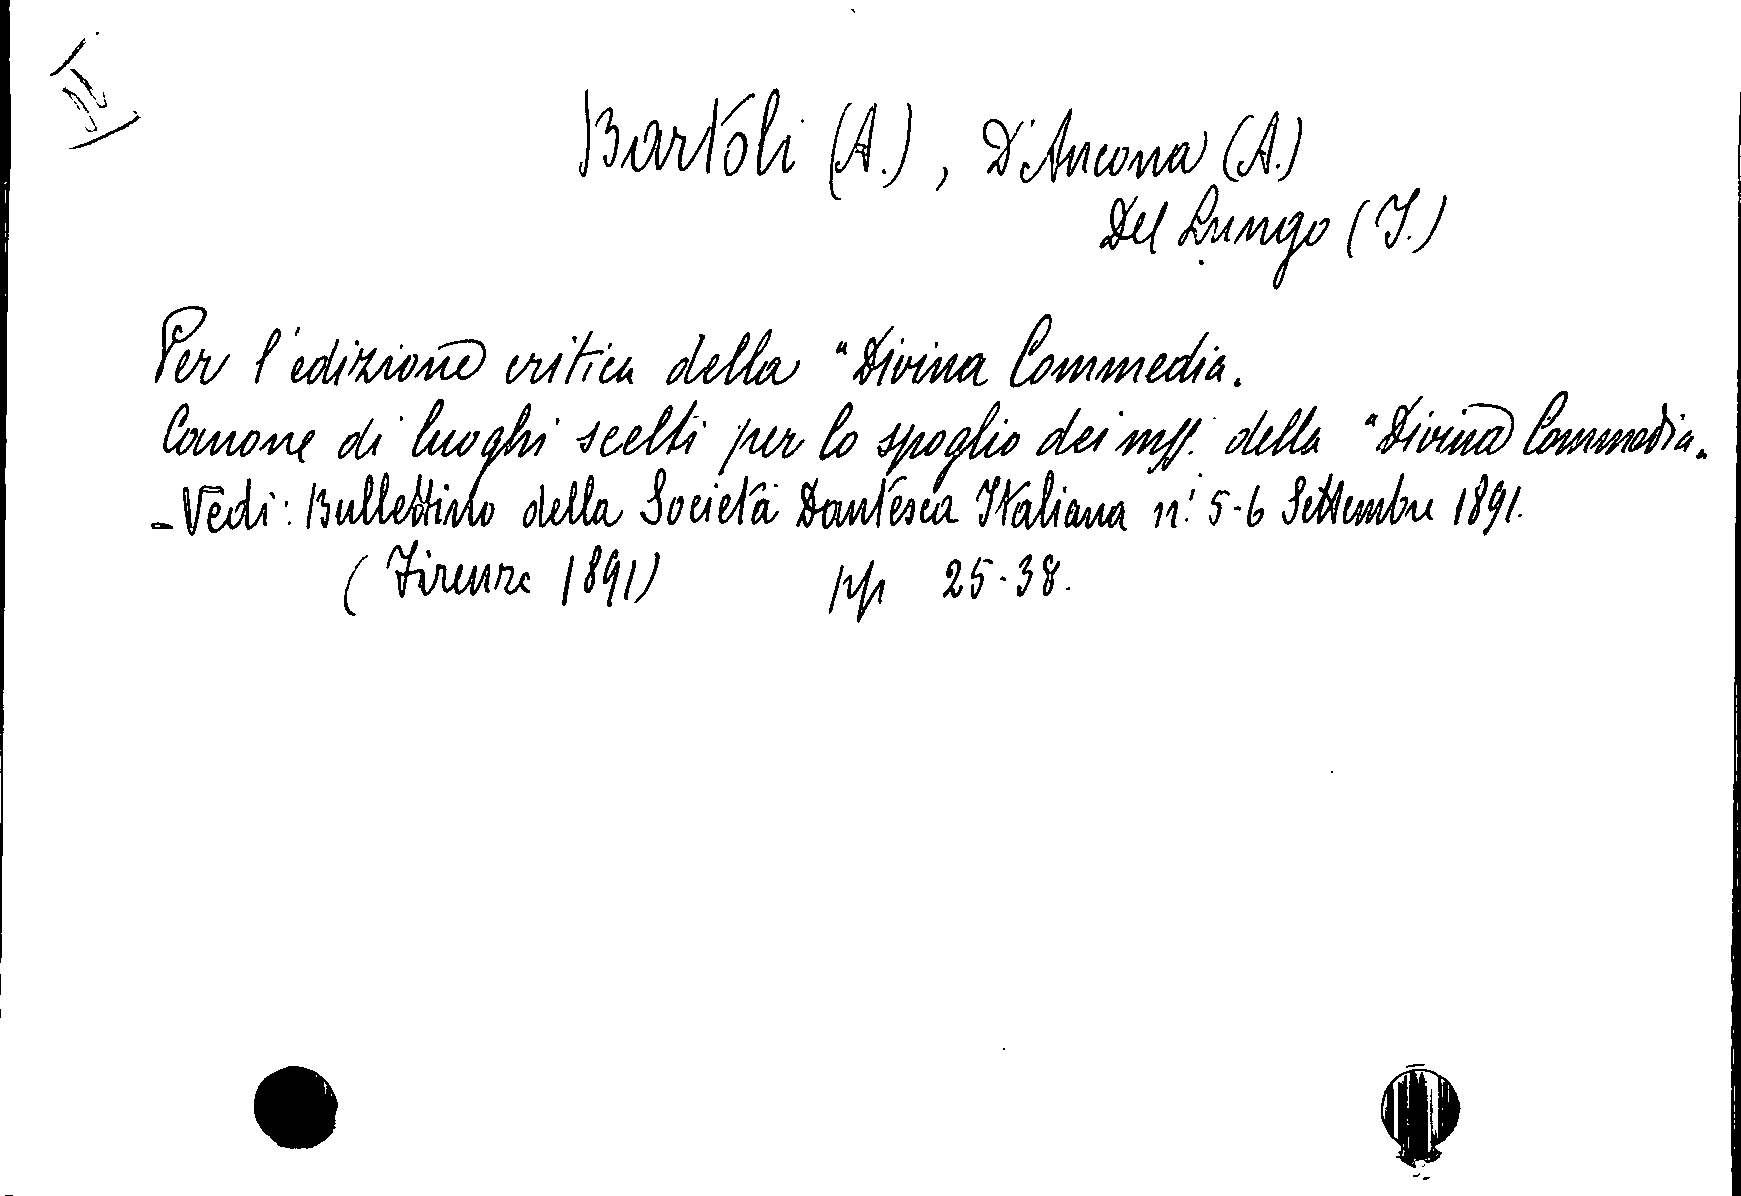 Bartoli (A.), D'Ancona (A.)
Del Lungo (I.)
Per l'edizione critica della "Divina Commedia.
Canone di luoghi scelti per lo spoglio dei mss. della "Divina Commedia.
- Vedi: Bullettino della Società Dantesca Italiana n.i 5-6 Settembre 1891.
(Firenze 1891) pp 25-38.